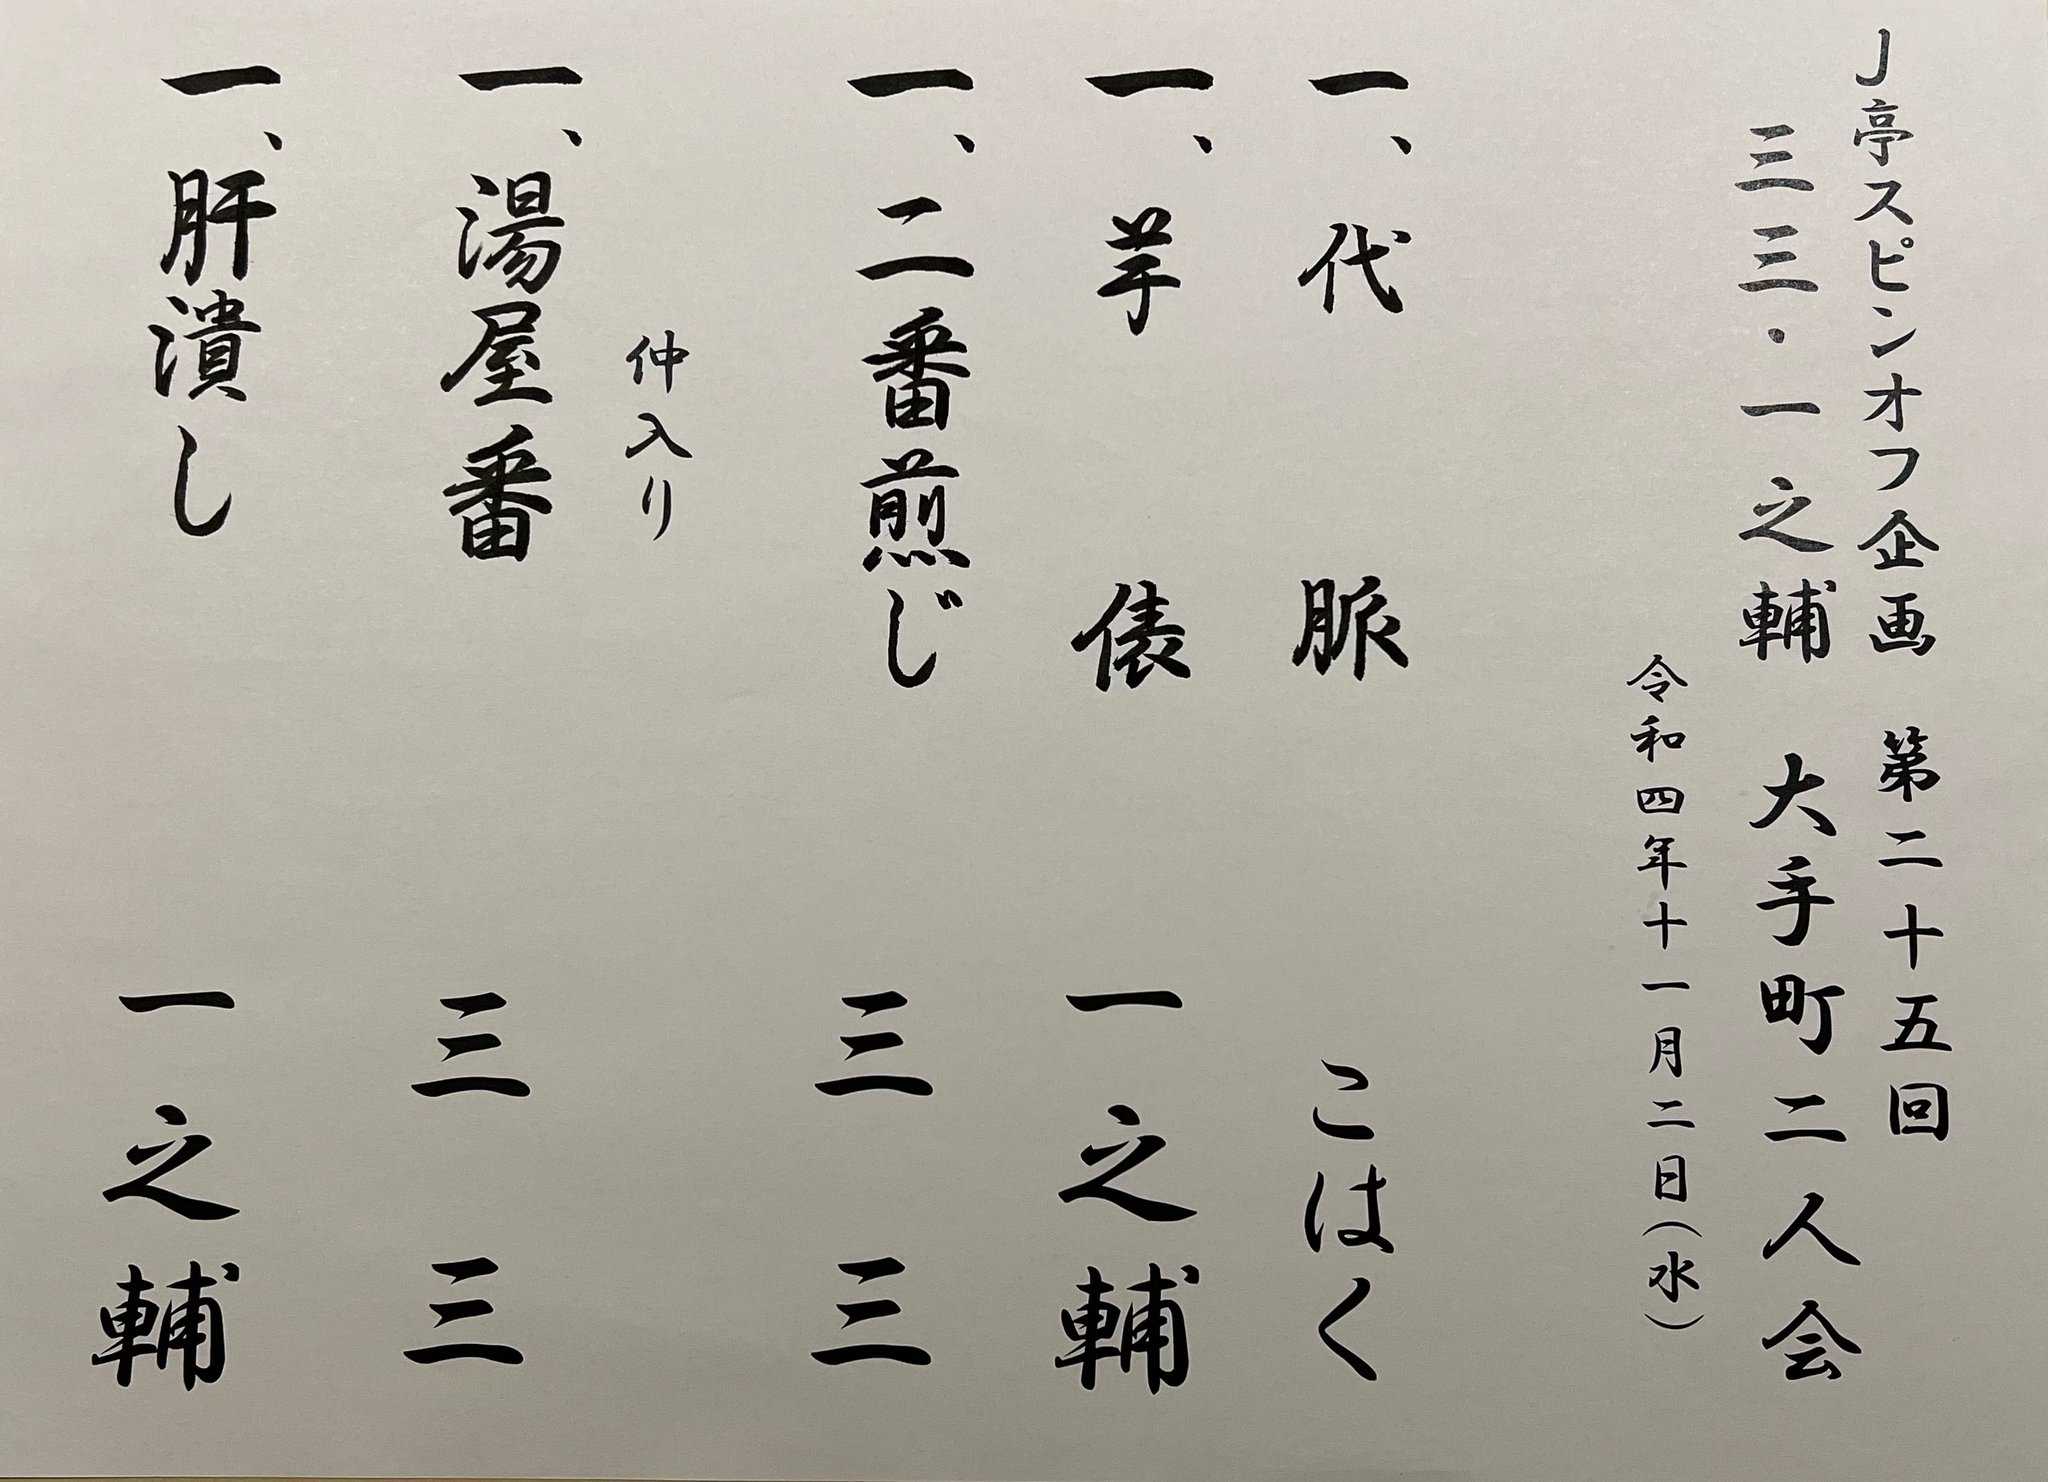 J亭スピンオフ企画 第二十五回
三三・一之輔 大手町二人会
令和四年十一月二日(水)
一、代脈 こはく
一、芋俵 一之輔
一、二番煎じ 三三
仲入り
一、湯屋番 三三
一、肝潰し 一之輔